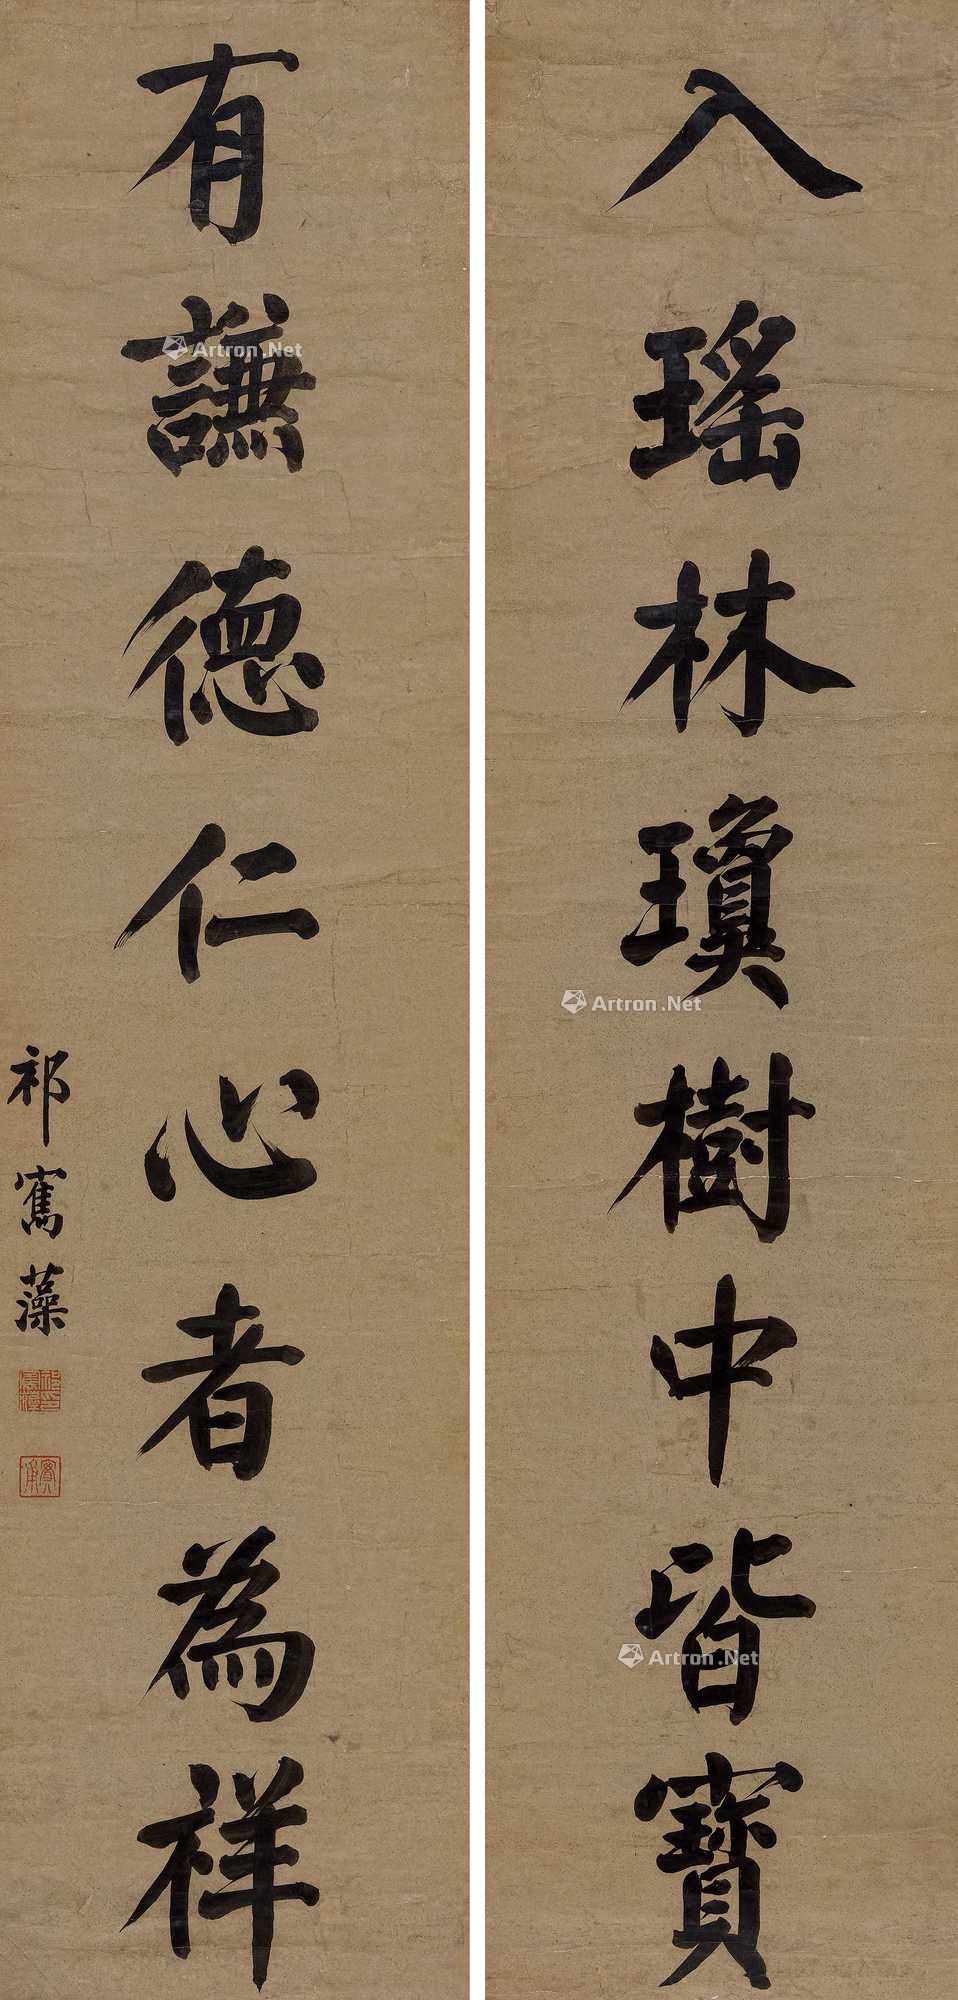 入瑤林瓊樹中皆寶
有謙德仁心者為祥
祁寯藻
Artron.Net
Artron.Net
Artron.Net